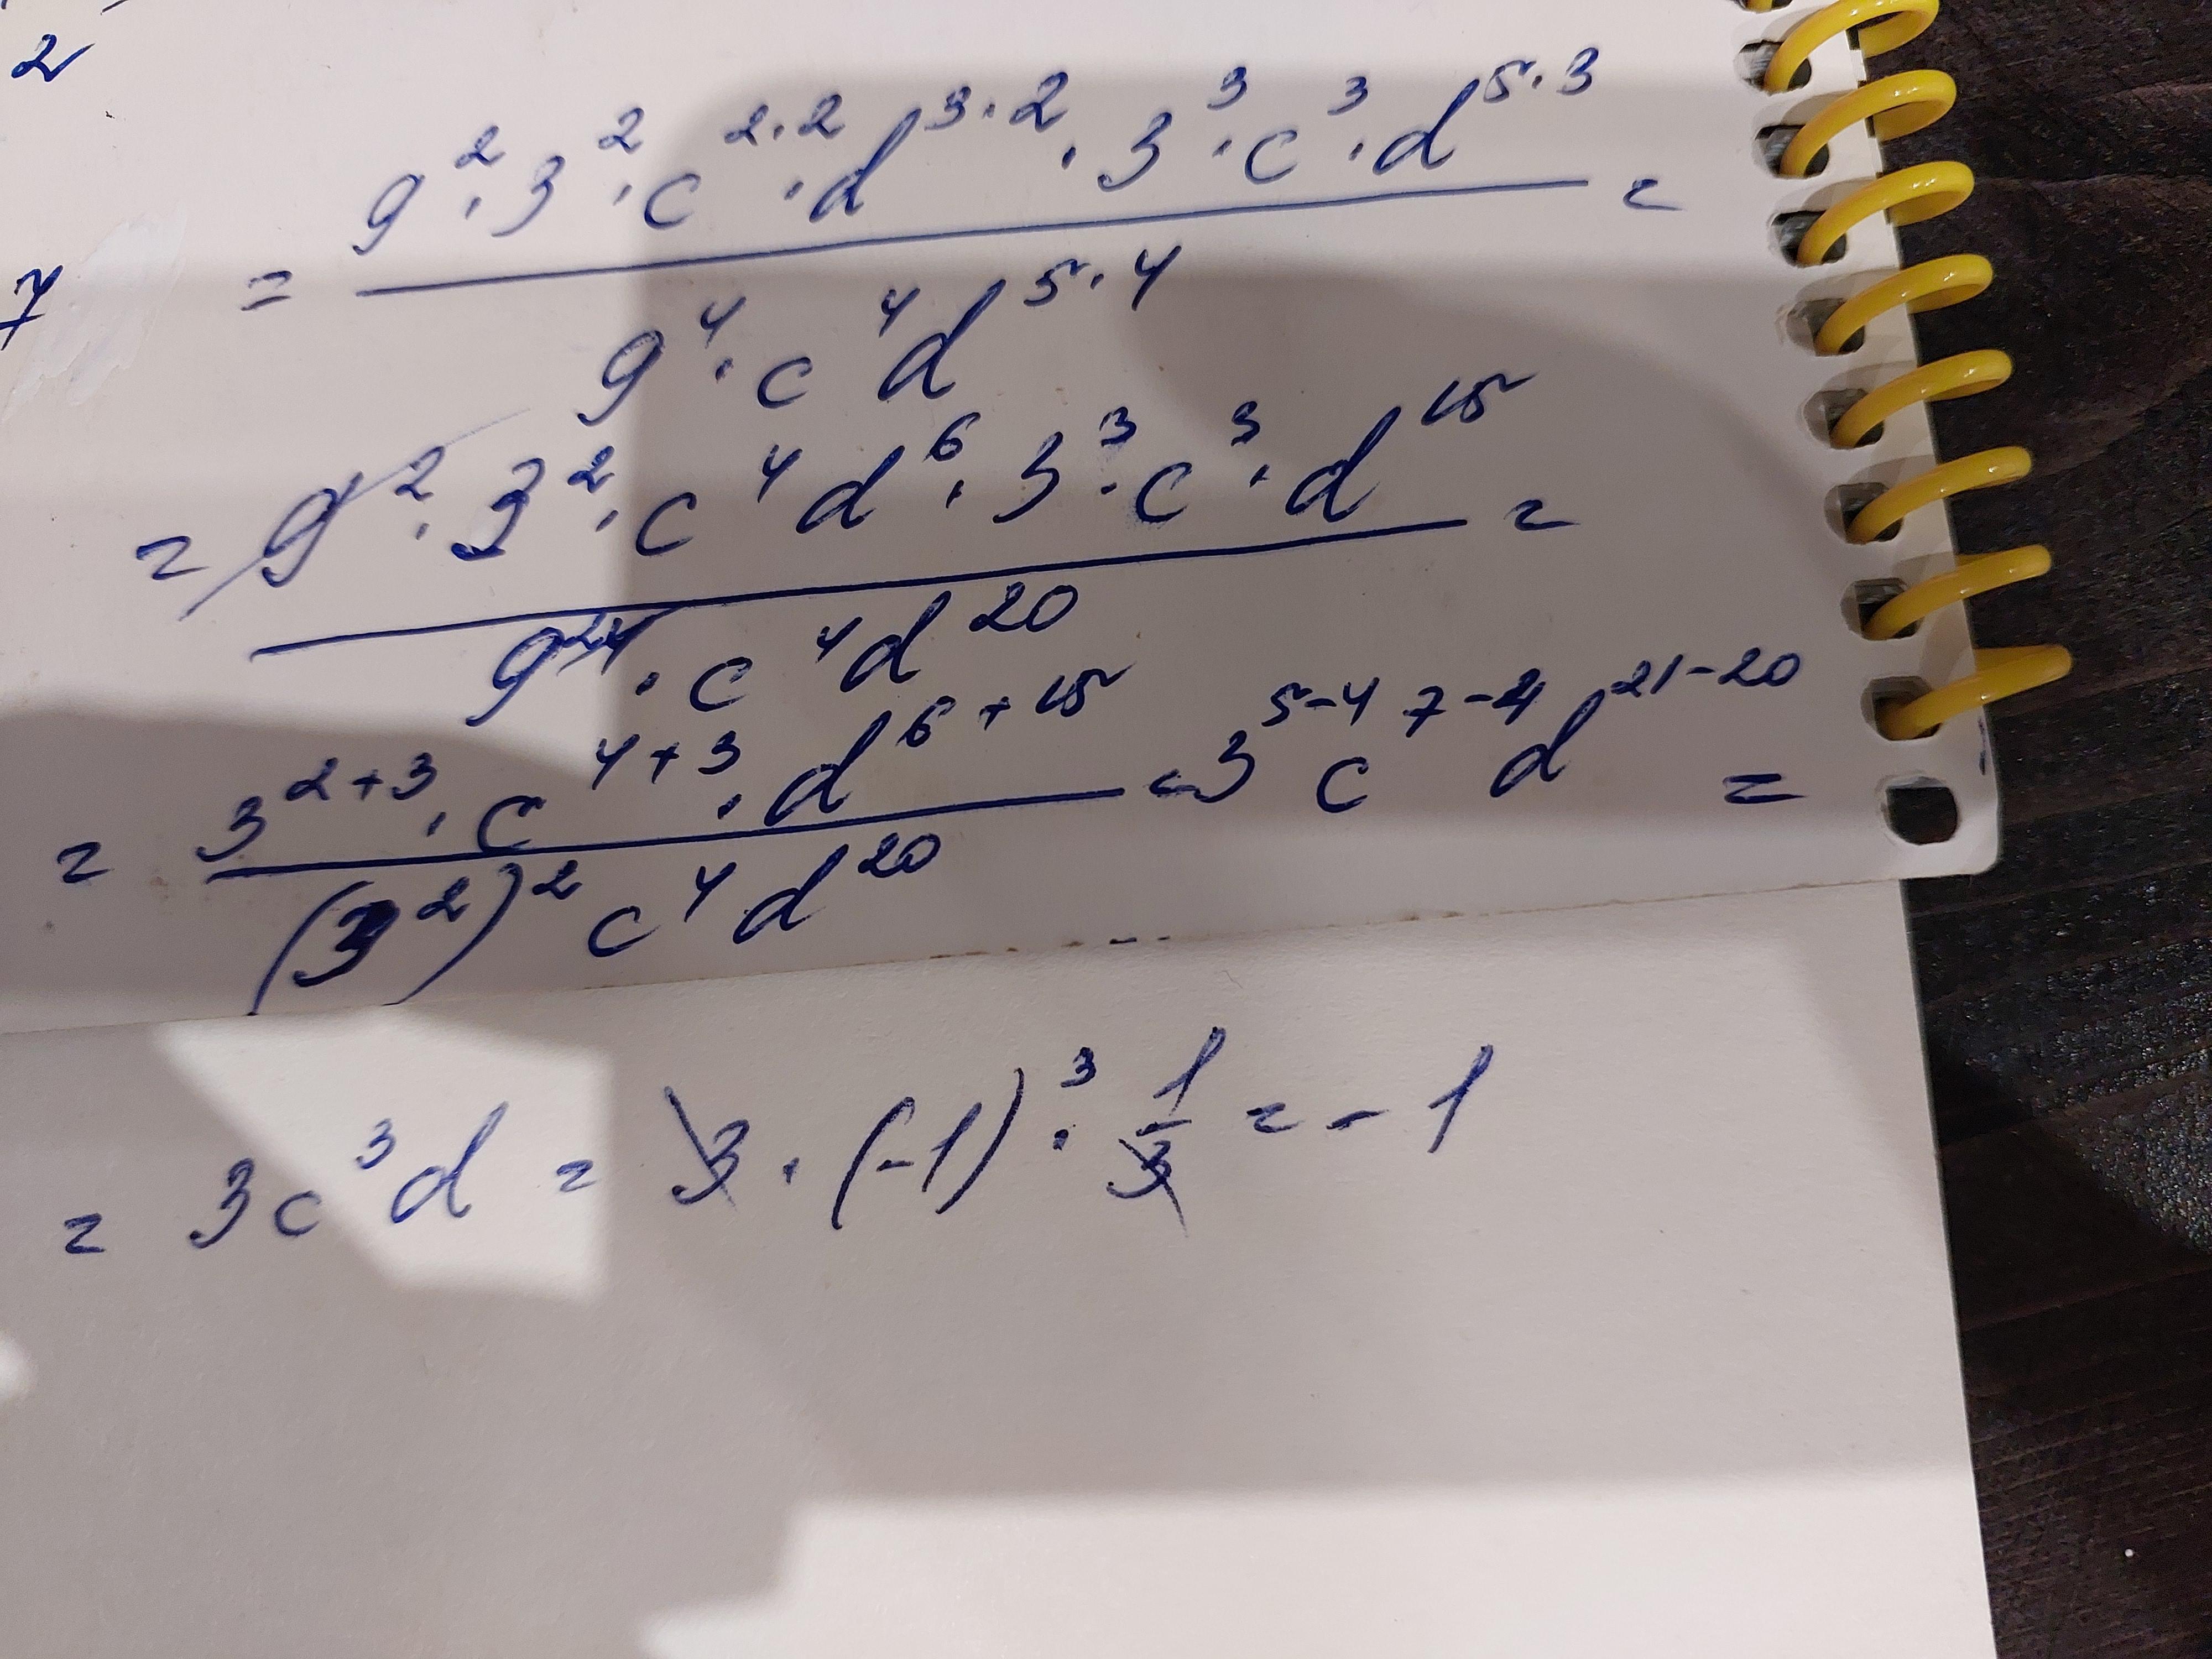 2
= 9² · 3² · c²·² · d³·² · 3³ · c³ · d⁵·³ =
7
9⁴ · c⁴ d⁵·⁴
= 9² · 3² · c⁴ d⁶ · 3³ · c³ · d¹⁵ =
9²⁴ · c⁴ d²⁰
= 3²⁺³ · c⁴⁺³ · d⁶⁺¹⁵ = 3⁵⁻⁴ c⁷⁻⁴ d²¹⁻²⁰ =
(3²)² c⁴ d²⁰
= 3c³d = 3 · (-1)³ · 1/3 = -1